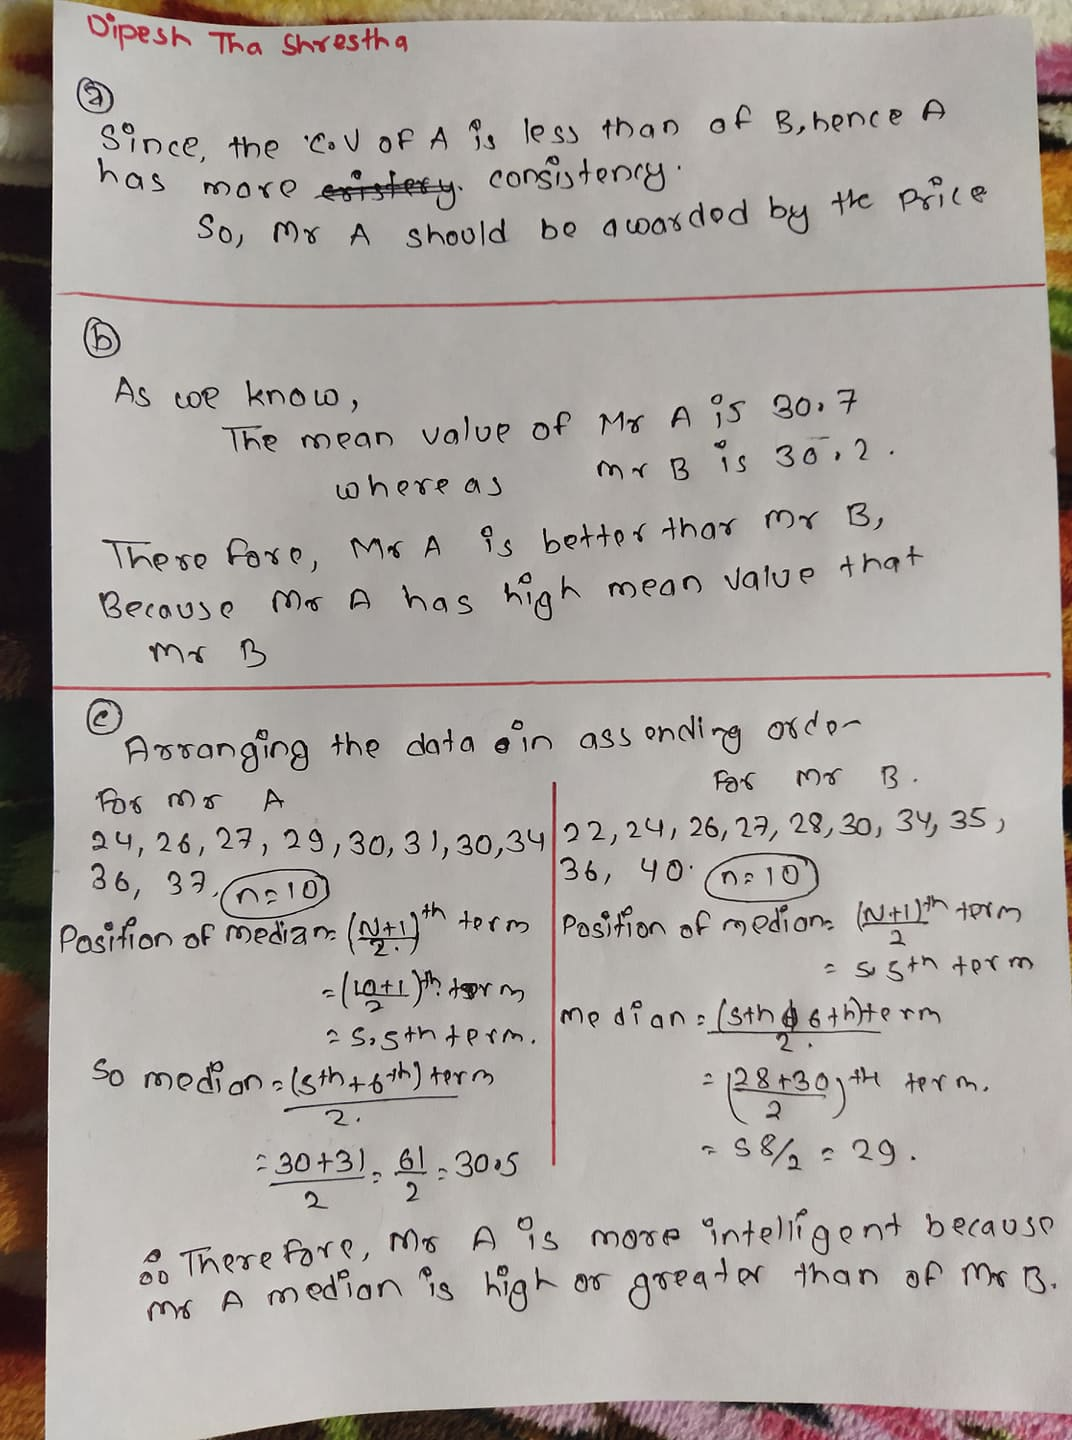 Dipesh Tha Shrestha
(a)
Since, the C.V of A is less than of B, hence A
has more consistency.
So, Mr A should be awarded by the Price
(b)
As we know,
The mean value of Mr A is 30.7
where as Mr B is 30.2.
There fore, Mr A is better than Mr B,
Because Mr A has high mean value that
Mr B
(c)
Arranging the data in assending order
For Mr A
24, 26, 27, 29, 30, 31, 30, 34
36, 37. n=10
Position of median= (N+1)/2 th term
=(10+1)/2 th term
= 5.5th term.
So median = (5th+6th) term/2.
= 30+31/2 = 61/2 = 30.5
For Mr B.
22, 24, 26, 27, 28, 30, 34, 35,
36, 40. n=10
Position of median= (N+1)/2 th term
= 5.5th term
median = (5th 6th)term/2.
= (28+30/2)th term.
= 58/2 = 29.
∴ Therefore, Mr A is more intelligent because
Mr A median is high or greater than of Mr B.